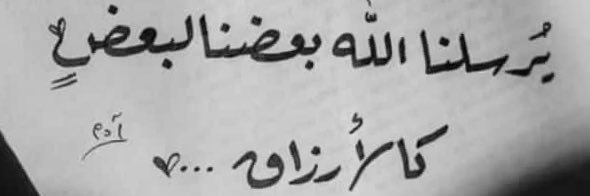 يُرسلنا الله بعضنا لبعضٍ
كالأرزاق ...♡
آدم